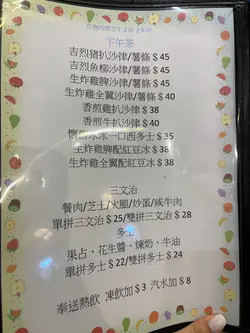 下午茶
吉烈豬扒沙律/薯條 $ 45
吉烈魚柳沙律/薯條 $ 45
生炸雞髀沙律/薯條 $ 45
生炸雞全翼沙律/薯條 $ 40
香煎雞扒沙律 $ 38
香煎牛扒沙律 $ 40
一口西多士 $ 35
生炸雞髀配紅豆冰 $ 38
生炸雞全翼配紅豆冰 $ 38
三文治
餐肉/芝士/火腿/炒蛋/咸牛肉
單拼三文治 $ 25/雙拼三文治 $ 28
多士
果占、花生醬、煉奶、牛油
單拼多士 $ 22/雙拼多士 $ 24
奉送熱飲 凍飲加 $ 3 汽水加 $ 8